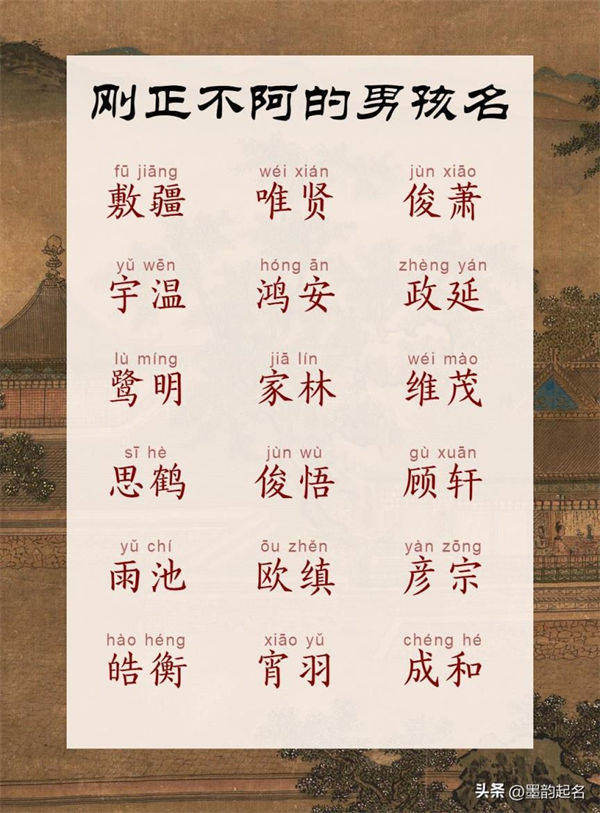 刚正不阿的男孩名
fū jiāng wéi xián jùn xiāo
敷疆 唯贤 俊萧
yǔ wēn hóng ān zhèng yán
宇温 鸿安 政延
lù míng jiā lín wéi mào
鹭明 家林 维茂
sī hè jùn wù gù xuān
思鹤 俊悟 顾轩
yǔ chí ōu zhěn yàn zōng
雨池 欧缜 彦宗
hào héng xiāo yǔ chéng hé
皓衡 宵羽 成和
头条 @墨韵起名